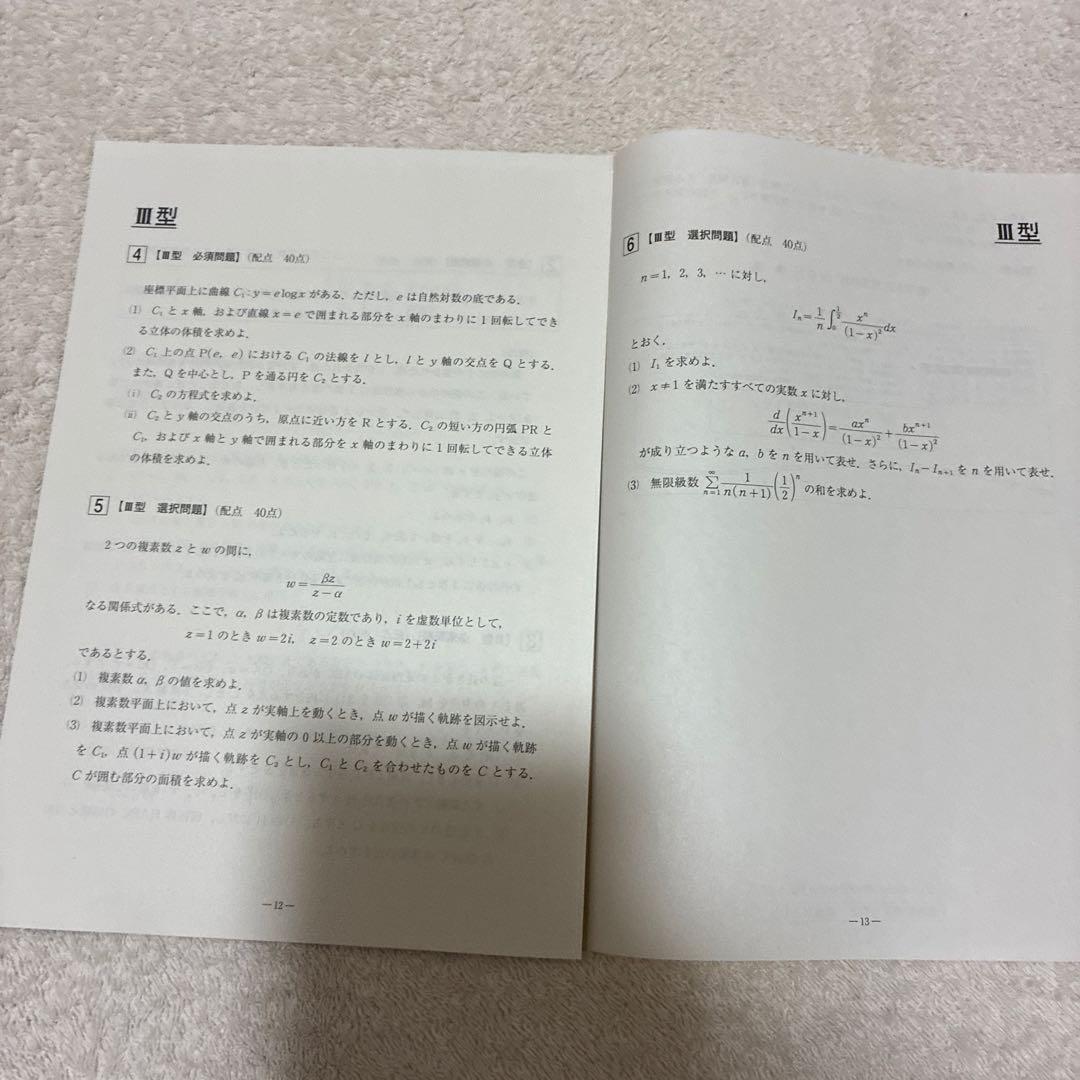 Ⅲ型
4 【Ⅲ型 必須問題】(配点 40点)
座標平面上に曲線 C₁: y=e log x がある．ただし，e は自然対数の底である．
(1) C₁ と x 軸，および直線 x=e で囲まれる部分を x 軸のまわりに 1 回転してでき
る立体の体積を求めよ．
(2) C₁ 上の点 P(e, e) における C₁ の法線を l とし，l と y 軸の交点を Q とする．
また，Q を中心とし，P を通る円を C₂ とする．
(i) C₂ の方程式を求めよ．
(ii) C₂ と y 軸の交点のうち，原点に近い方を R とする．C₂ の短い方の円弧 PR と
C₁，および x 軸と y 軸で囲まれる部分を x 軸のまわりに 1 回転してできる立体
の体積を求めよ．
5 【Ⅲ型 選択問題】(配点 40点)
2 つの複素数 z と w の間に，
w = βz/(z−α)
なる関係式がある．ここで，α，β は複素数の定数であり，i を虚数単位として，
z=1 のとき w=2i， z=2 のとき w=2+2i
であるとする．
(1) 複素数 α，β の値を求めよ．
(2) 複素数平面上において，点 z が実軸上を動くとき，点 w が描く軌跡を図示せよ．
(3) 複素数平面上において，点 z が実軸の 0 以上の部分を動くとき，点 w が描く軌跡
を C₁，点 (1+i)w が描く軌跡を C₂ とし，C₁ と C₂ を合わせたものを C とする．
C が囲む部分の面積を求めよ．
—12—
Ⅲ型
6 【Ⅲ型 選択問題】(配点 40点)
n=1, 2, 3, … に対し，
Iₙ = 1/n ∫₀^{1/2} xⁿ/(1−x)² dx
とおく．
(1) I₁ を求めよ．
(2) x≠1 を満たすすべての実数 x に対し，
d/dx (xⁿ⁺¹/(1−x)) = axⁿ/(1−x)² + bxⁿ⁺¹/(1−x)²
が成り立つような a，b を n を用いて表せ．さらに，Iₙ−Iₙ₊₁ を n を用いて表せ．
(3) 無限級数 ∑_{n=1}^{∞} 1/(n(n+1)) (1/2)ⁿ の和を求めよ．
—13—